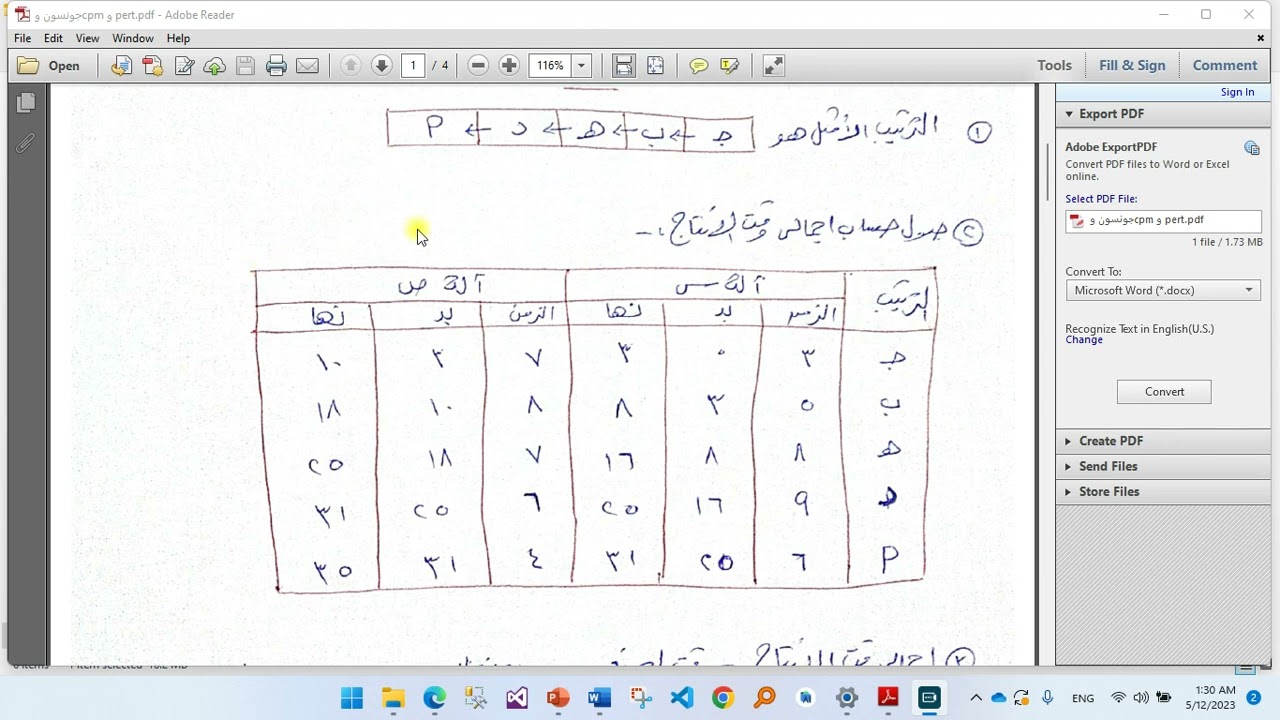 جونسون و cpm و pert.pdf - Adobe Reader
File Edit View Window Help
Open 1 / 4 116% Tools Fill & Sign Comment
Sign In
Export PDF
Adobe ExportPDF
Convert PDF files to Word or Excel online.
Select PDF File:
جونسون و cpm و pert.pdf
1 file / 1.73 MB
Convert To:
Microsoft Word (*.docx)
Recognize Text in English(U.S.)
Change
Convert
Create PDF
Send Files
Store Files
① الترتيب الأمثل هو ج ← ب ← هـ ← د ← P
② جدول حساب اجمالى وقت الانتاج :-
الترتيب آلة س آلة ص
الزمن بد نها الزمن بد نها
ج ٣ ٠ ٣ ٧ ٣ ١٠
ب ٥ ٣ ٨ ٨ ١٠ ١٨
هـ ٨ ٨ ١٦ ٧ ١٨ ٢٥
د ٩ ١٦ ٢٥ ٦ ٢٥ ٣١
P ٦ ٢٥ ٣١ ٤ ٣١ ٣٥
اجمالى وقت الانتاج
ENG
1:30 AM
5/12/2023
2